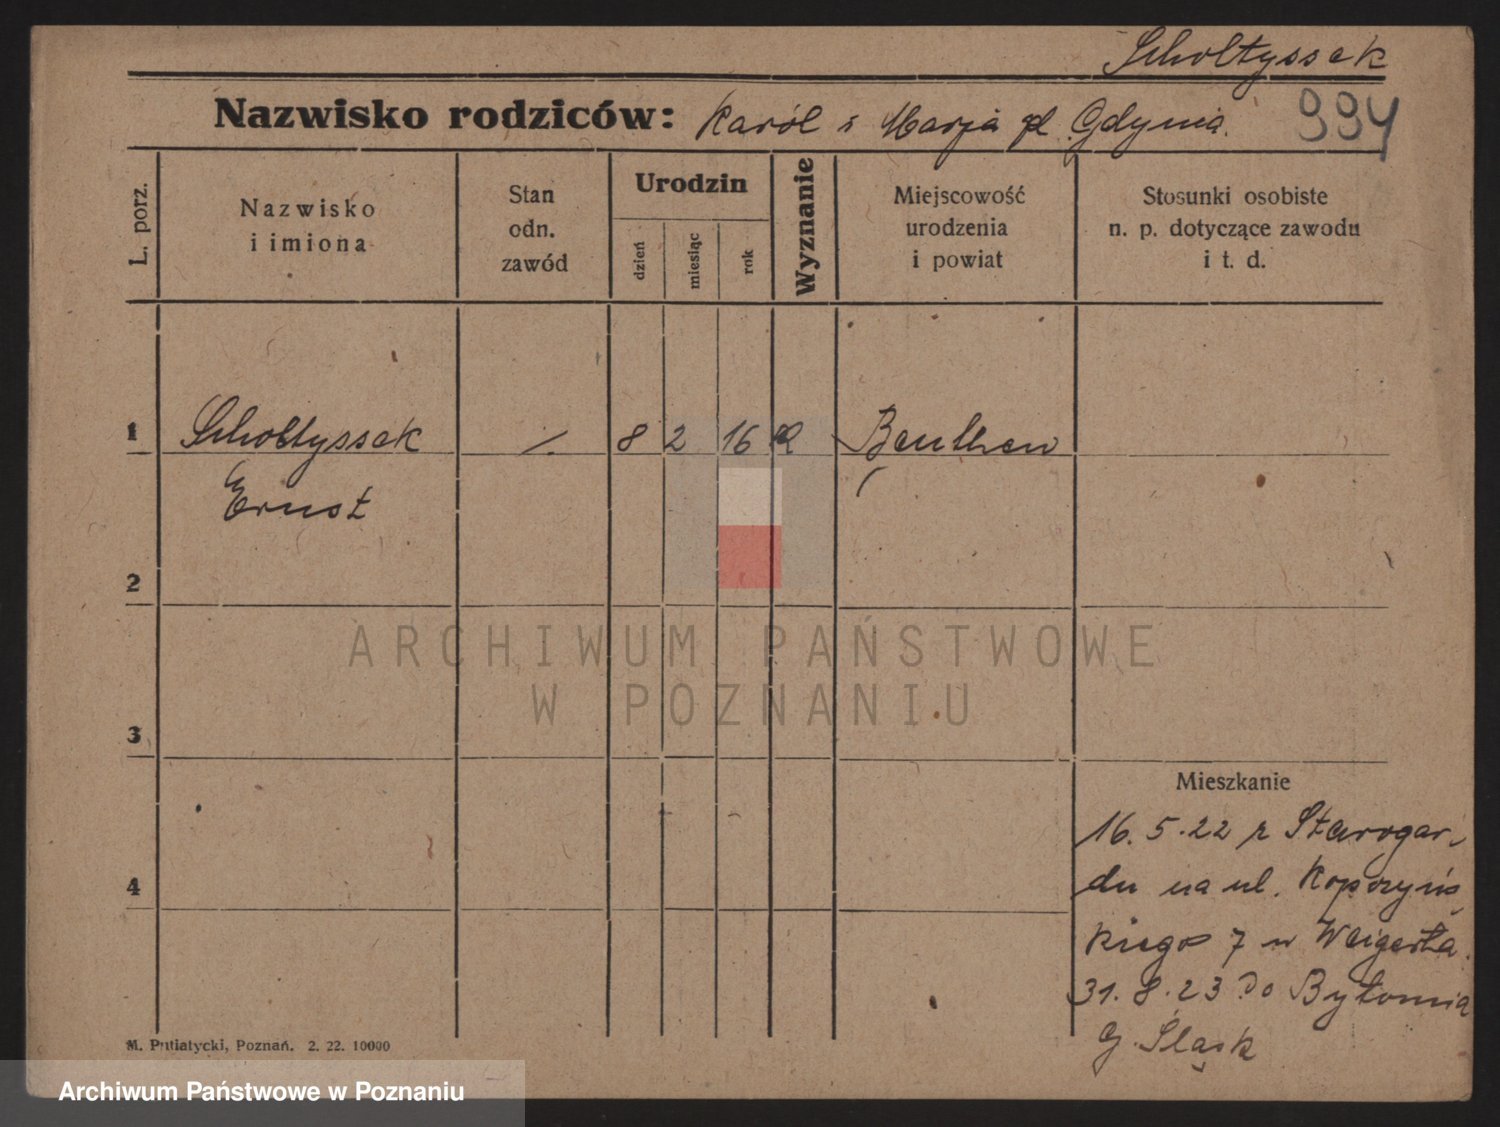 Scholtyssek
Nazwisko rodziców: Karól i Marja Gdynia.
994
L. porz.
Nazwisko
i imiona
Stan
odn.
zawód
Urodzin
dzień
miesiąc
rok
Wyznanie
Miejscowość
urodzenia
i powiat
Stosunki osobiste
n. p. dotyczące zawodu
i t. d.
1 Scholtyssek 8 2 16 Beuthen
Ernst
2
ARCHIWUM PAŃSTWOWE
W POZNANIU
3
Mieszkanie
16. 5. 22 z Starogar-
4
du na ul. Kopczyńs
kiego 7 u Weigerta.
31. 8. 23 do Bytomia
G. Śląsk
M. Putiatycki, Poznań. 2. 22. 10000
Archiwum Państwowe w Poznaniu